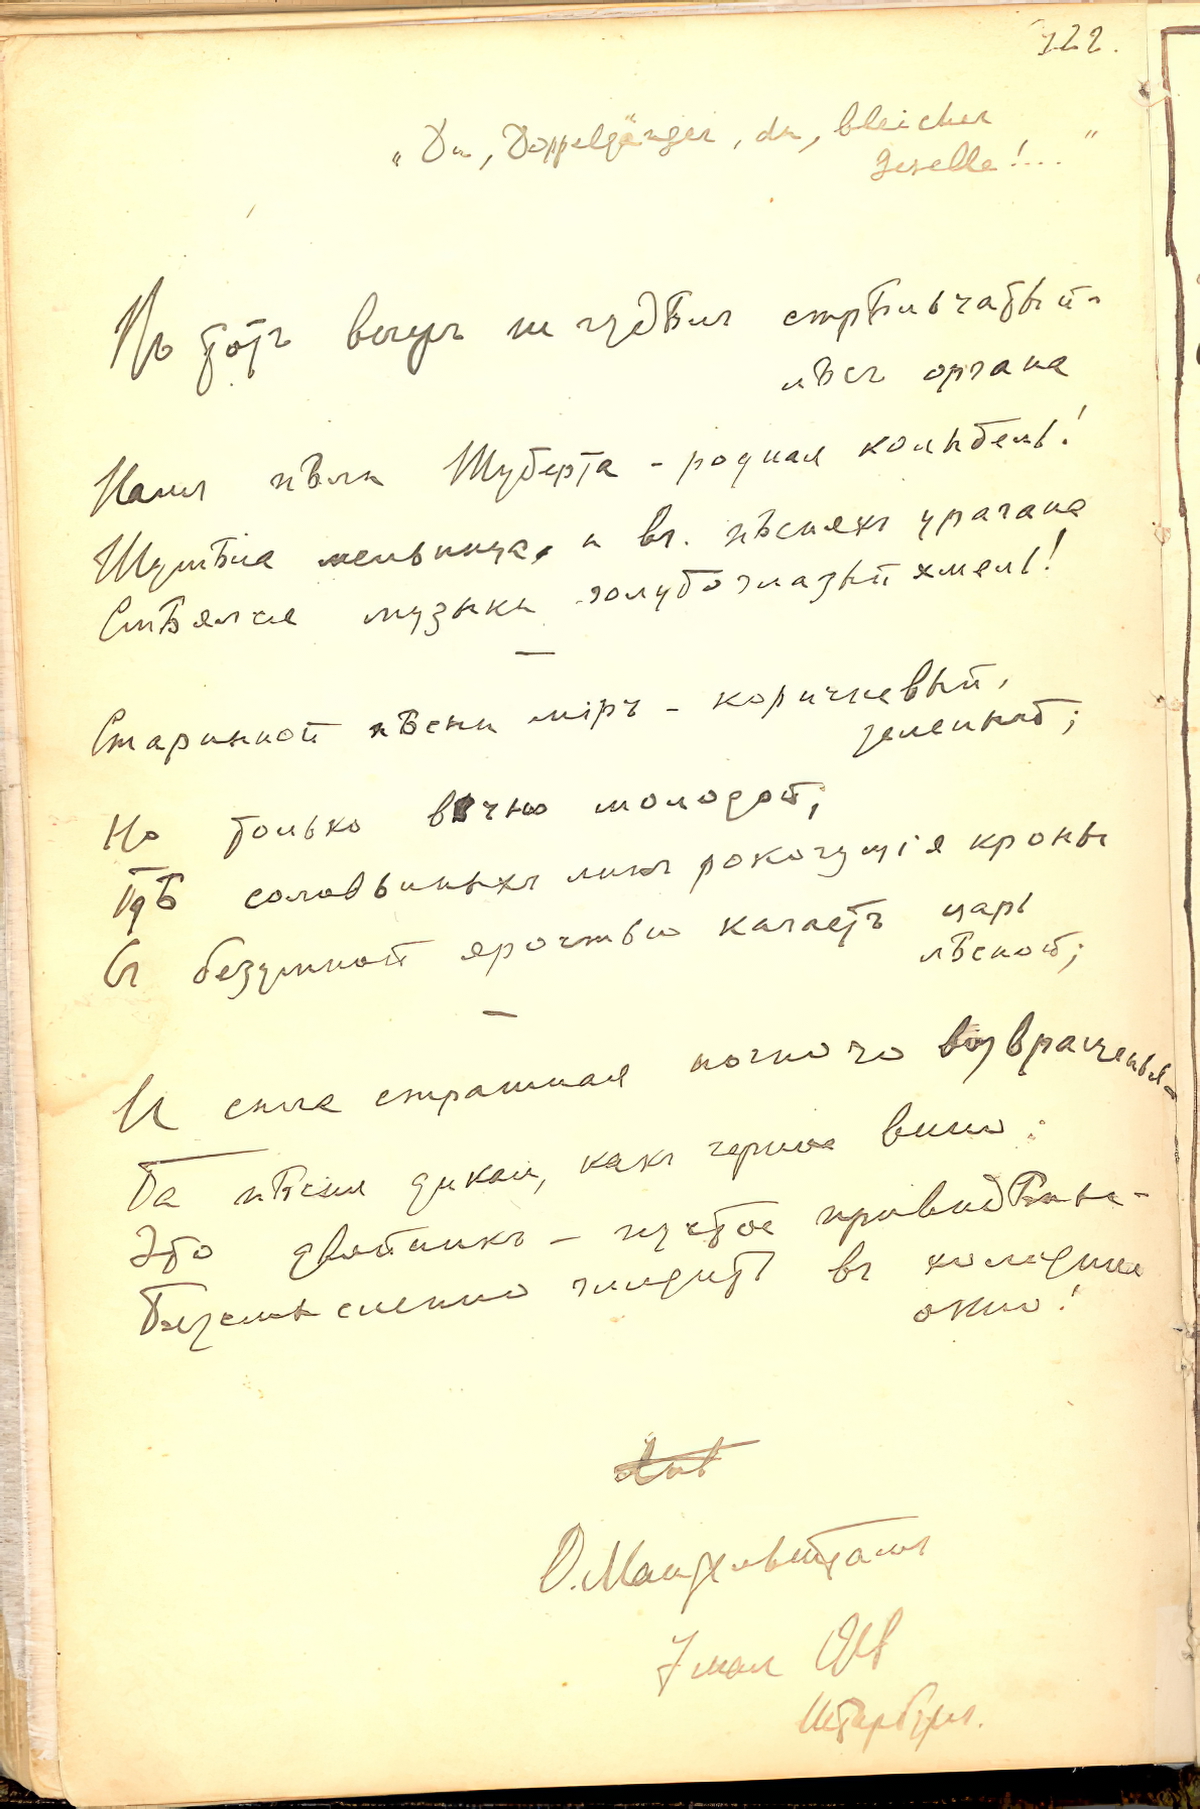 122.
„Du, Doppelgänger, du, bleicher
Geselle!..."
Въ тотъ вечеръ не гудѣлъ стрѣльчатый
лѣсъ органа
Намъ пѣли Шуберта – родная колыбель!
Шумѣла мельница, и въ пѣсняхъ урагана
Смѣялся музыки голубоглазый хмель!
Старинной пѣсни міръ – коричневый,
зеленый;
Но только вѣчно молодой;
Гдѣ соловьиныхъ липъ рокочущія кроны
Съ безумной яростью качаетъ царь
лѣсной;
И сила страшная ночного возвращенья –
Та пѣсня дикая, какъ черное вино:
Это двойникъ – пустое привидѣнье –
Безсмысленно глядитъ въ холодное
окно!
О. Мандельштамъ
Петербургъ.